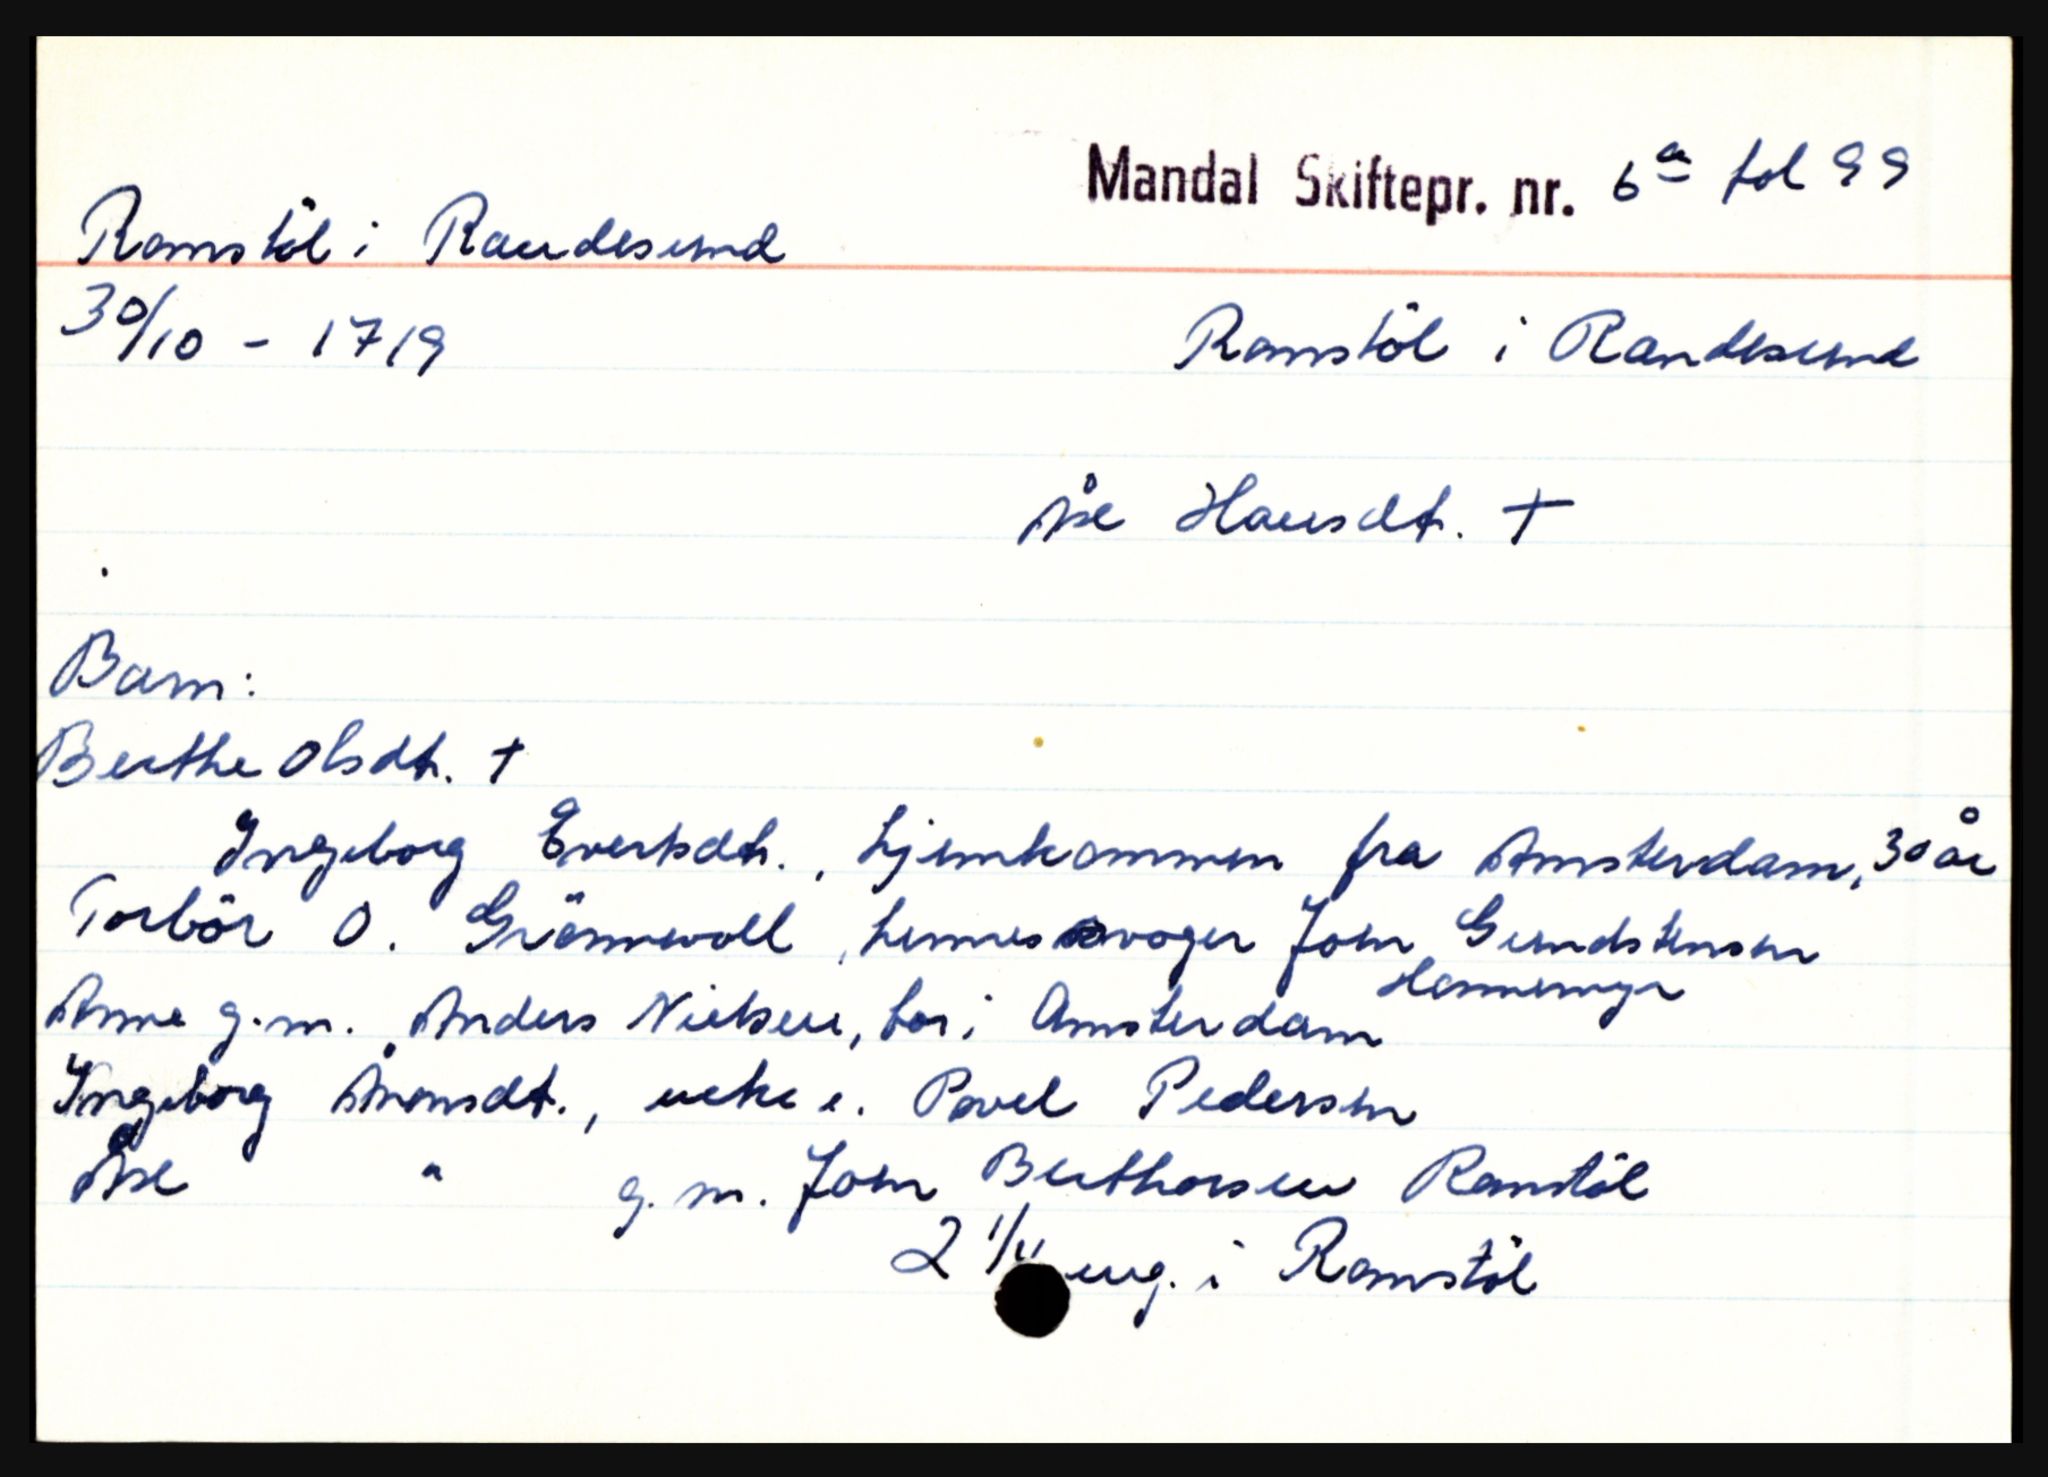 Mandal Skiftepr. nr. 6a fol 99
Ramstöl i Randesund
30/10 - 1719
Ramstöl i Randesund
Åse Hansdt. †
Barn:
Berthe Olsdt. †
Ingeborg Evertsdt., hjemkommen fra Amsterdam, 30 år
Torbör O. Grönnevoll, hennes svoger Joen Gundstensen
Hannemyr
Anne g.m. Anders Nielsen, bor i Amsterdam
Ingeborg Ånonsdt., enke e. Povel Pedersen
Åse " g.m. Joen Berthorsen Ramstöl
2 1/4 eng. i Ramstöl